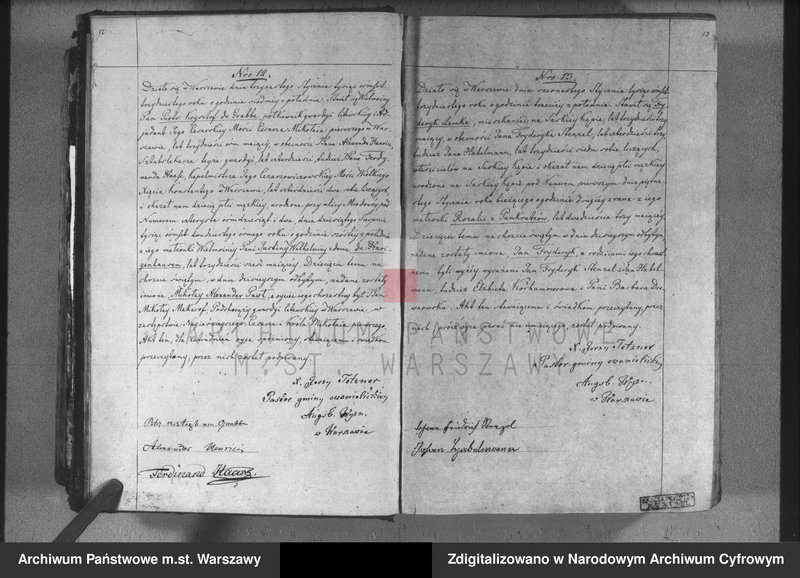 12
Nro 12.
Działo się w Warszawie dnia trzynastego Stycznia tysiąc ośmset
trzydziestego roku o godzinie siódmey z południa. Stawił się Wielmożny
Pan Piotr Krzysztof de Grabbe, półkownik gwardyi litewskiey i Ad-
jutant Jego Cesarskiey Mości Cesarza Mikołaia pierwszego w War-
szawie, lat trzydzieści maiący, w obecności Pana Alexandra
Sztabslekarza teyże gwardyi, lat czterdzieści, tudzież Pana Ferdy-
nanda Haase, kapelmistrza Jego Cesarzewiczowskiey Mości Wielkiego
Xięcia Konstantego w Warszawie, lat czterdzieści dwa liczących
i okazał nam dziecię płci męskiey, urodzone przy ulicy Miodowey pod
Numerem czterysta ośmdziesiąt i dwa, dnia dziewiątego Sierpnia
tysiąc ośmset dwudziestego ósmego roku o godzinie szóstey z południa
z iego małżonki Wielmożney Pani Justiny Wilhelminy z domu de
lat trzydzieści sześć maiącey. Dziecięciu temu na
chrzcie świętym, w dniu dzisieyszym odbytym, nadane zostały
imiona Mikołay Alexander Paweł, a oycem iego chrzestnym był Pan
Mikołay Makarof, Podchorąży gwardyi litewskiey w Warszawie w
zastępstwie Nayiaśnieyszego Cesarza i Króla Mikołaia pierwszego.
Akt ten, dla zatrudnień oyca spóźniony, stawaiącemu i świadkom
przeczytany, przez nich został podpisany.
X. Jerzy Tetzner
Pastor gminy ewanielickiey
Augsb. Wyzn.
w Warszawie
Alexander
Ferdinand Haase.
13
Nro 13.
Działo się w Warszawie dnia szesnastego Stycznia tysiąc ośmset
trzydziestego roku o godzinie trzeciey z południa. Stawił się Fry-
deryk Lemke, mieszkaniec na Saskiey kępie, lat trzydzieści trzy
maiący, w obecności Jana Fryderyka Stenzel, lat czterdzieści
tudzież Jana Habelmann, lat trzydzieści siedm liczących,
na Saskiey kępie i okazał nam dziecię płci męskiey
urodzone na Saskiey kępie pod Numerem pierwszym dnia piętna-
stego Stycznia roku bieżącego o godzinie drugiey z rana z iego
małżonki Rozalii z Pankratzów, lat dwadzieścia trzy maiącey.
Dziecięciu temu na chrzcie świętym w dniu dzisieyszym odbytym
nadane zostały imiona, Jan Fryderyk, a rodzicami iego chrzest-
nemi byli wyżey wyrażeni Jan Fryderyk Stenzel i Jan Habel-
mann, tudzież Elżbieta i Pani Barbara
Akt ten stawaiącemu i świadkom przeczytany, przez
nich, prócz oyca pisać nie umieiącego, został podpisany.
X. Jerzy Tetzner
Pastor gminy ewanielickiey
Augsb. Wyzn.
w Warszawie
Johann Friedrich Stenzel
Johann Habelmann
ARCHIWUM PAŃSTWOWE
M.ST. WARSZAWY
Archiwum Państwowe m.st. Warszawy
Zdigitalizowano w Narodowym Archiwum Cyfrowym